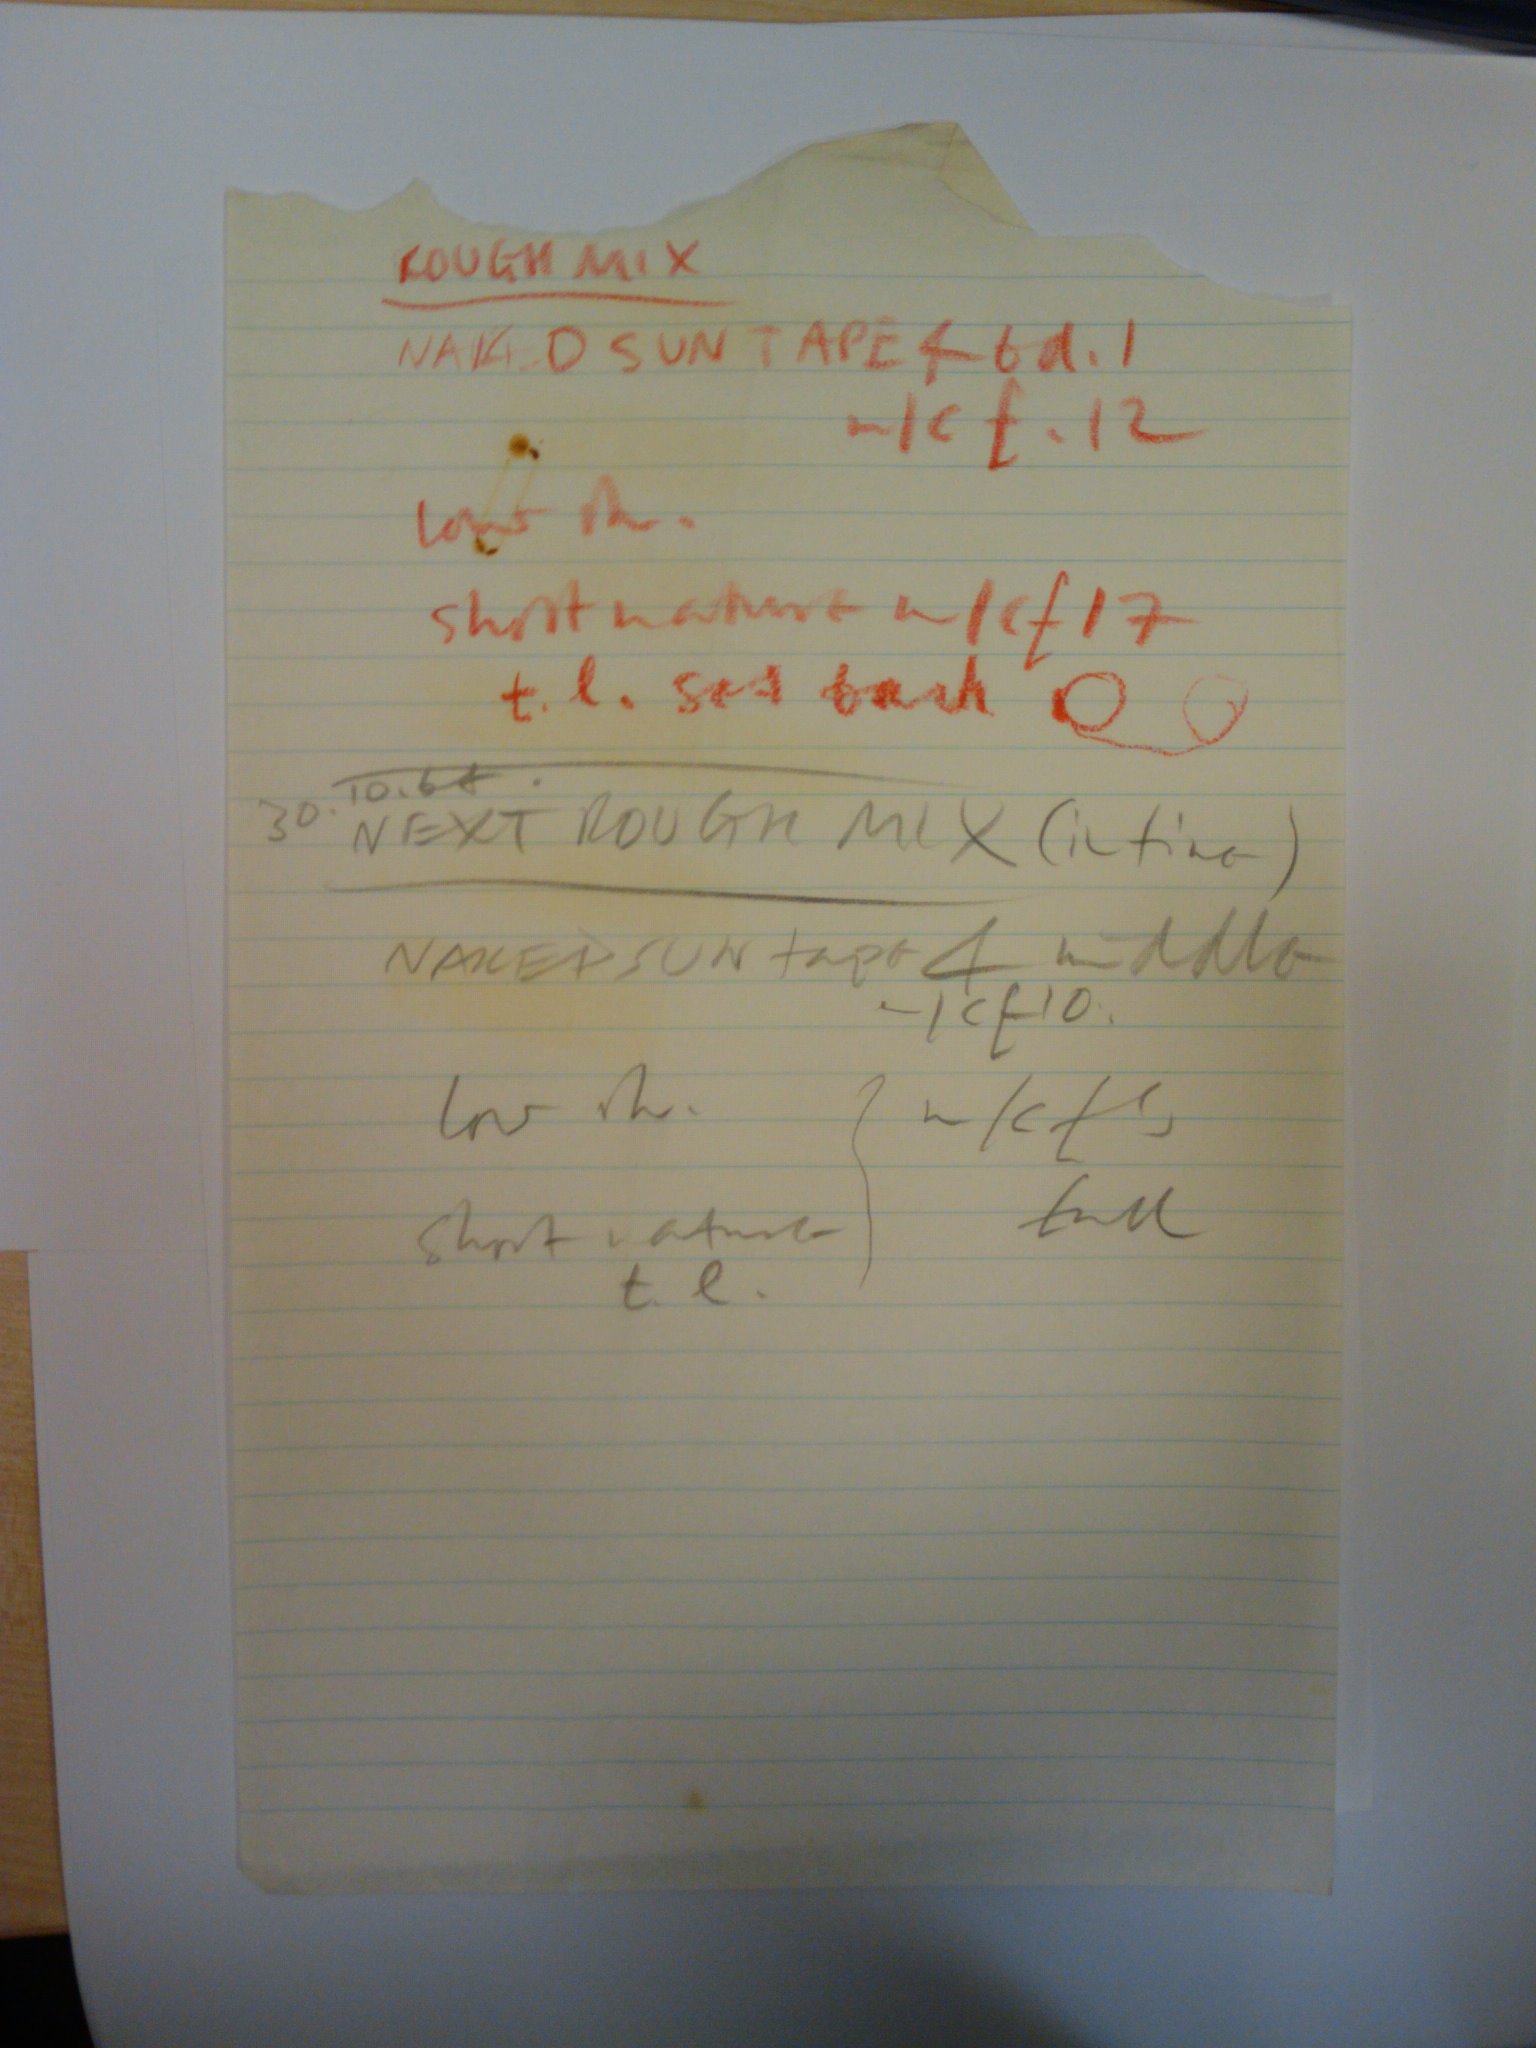 ROUGH MIX
NAKED SUN TAPE 4 bd. 1
w/cf. 12
low rh.
short nature w/cf 17
t.l. set back
30. 10. 64.
NEXT ROUGH MIX (in time)
NAKED SUN tape 4 middle
w/cf 10.
low rh. w/cf
short nature
t.l.